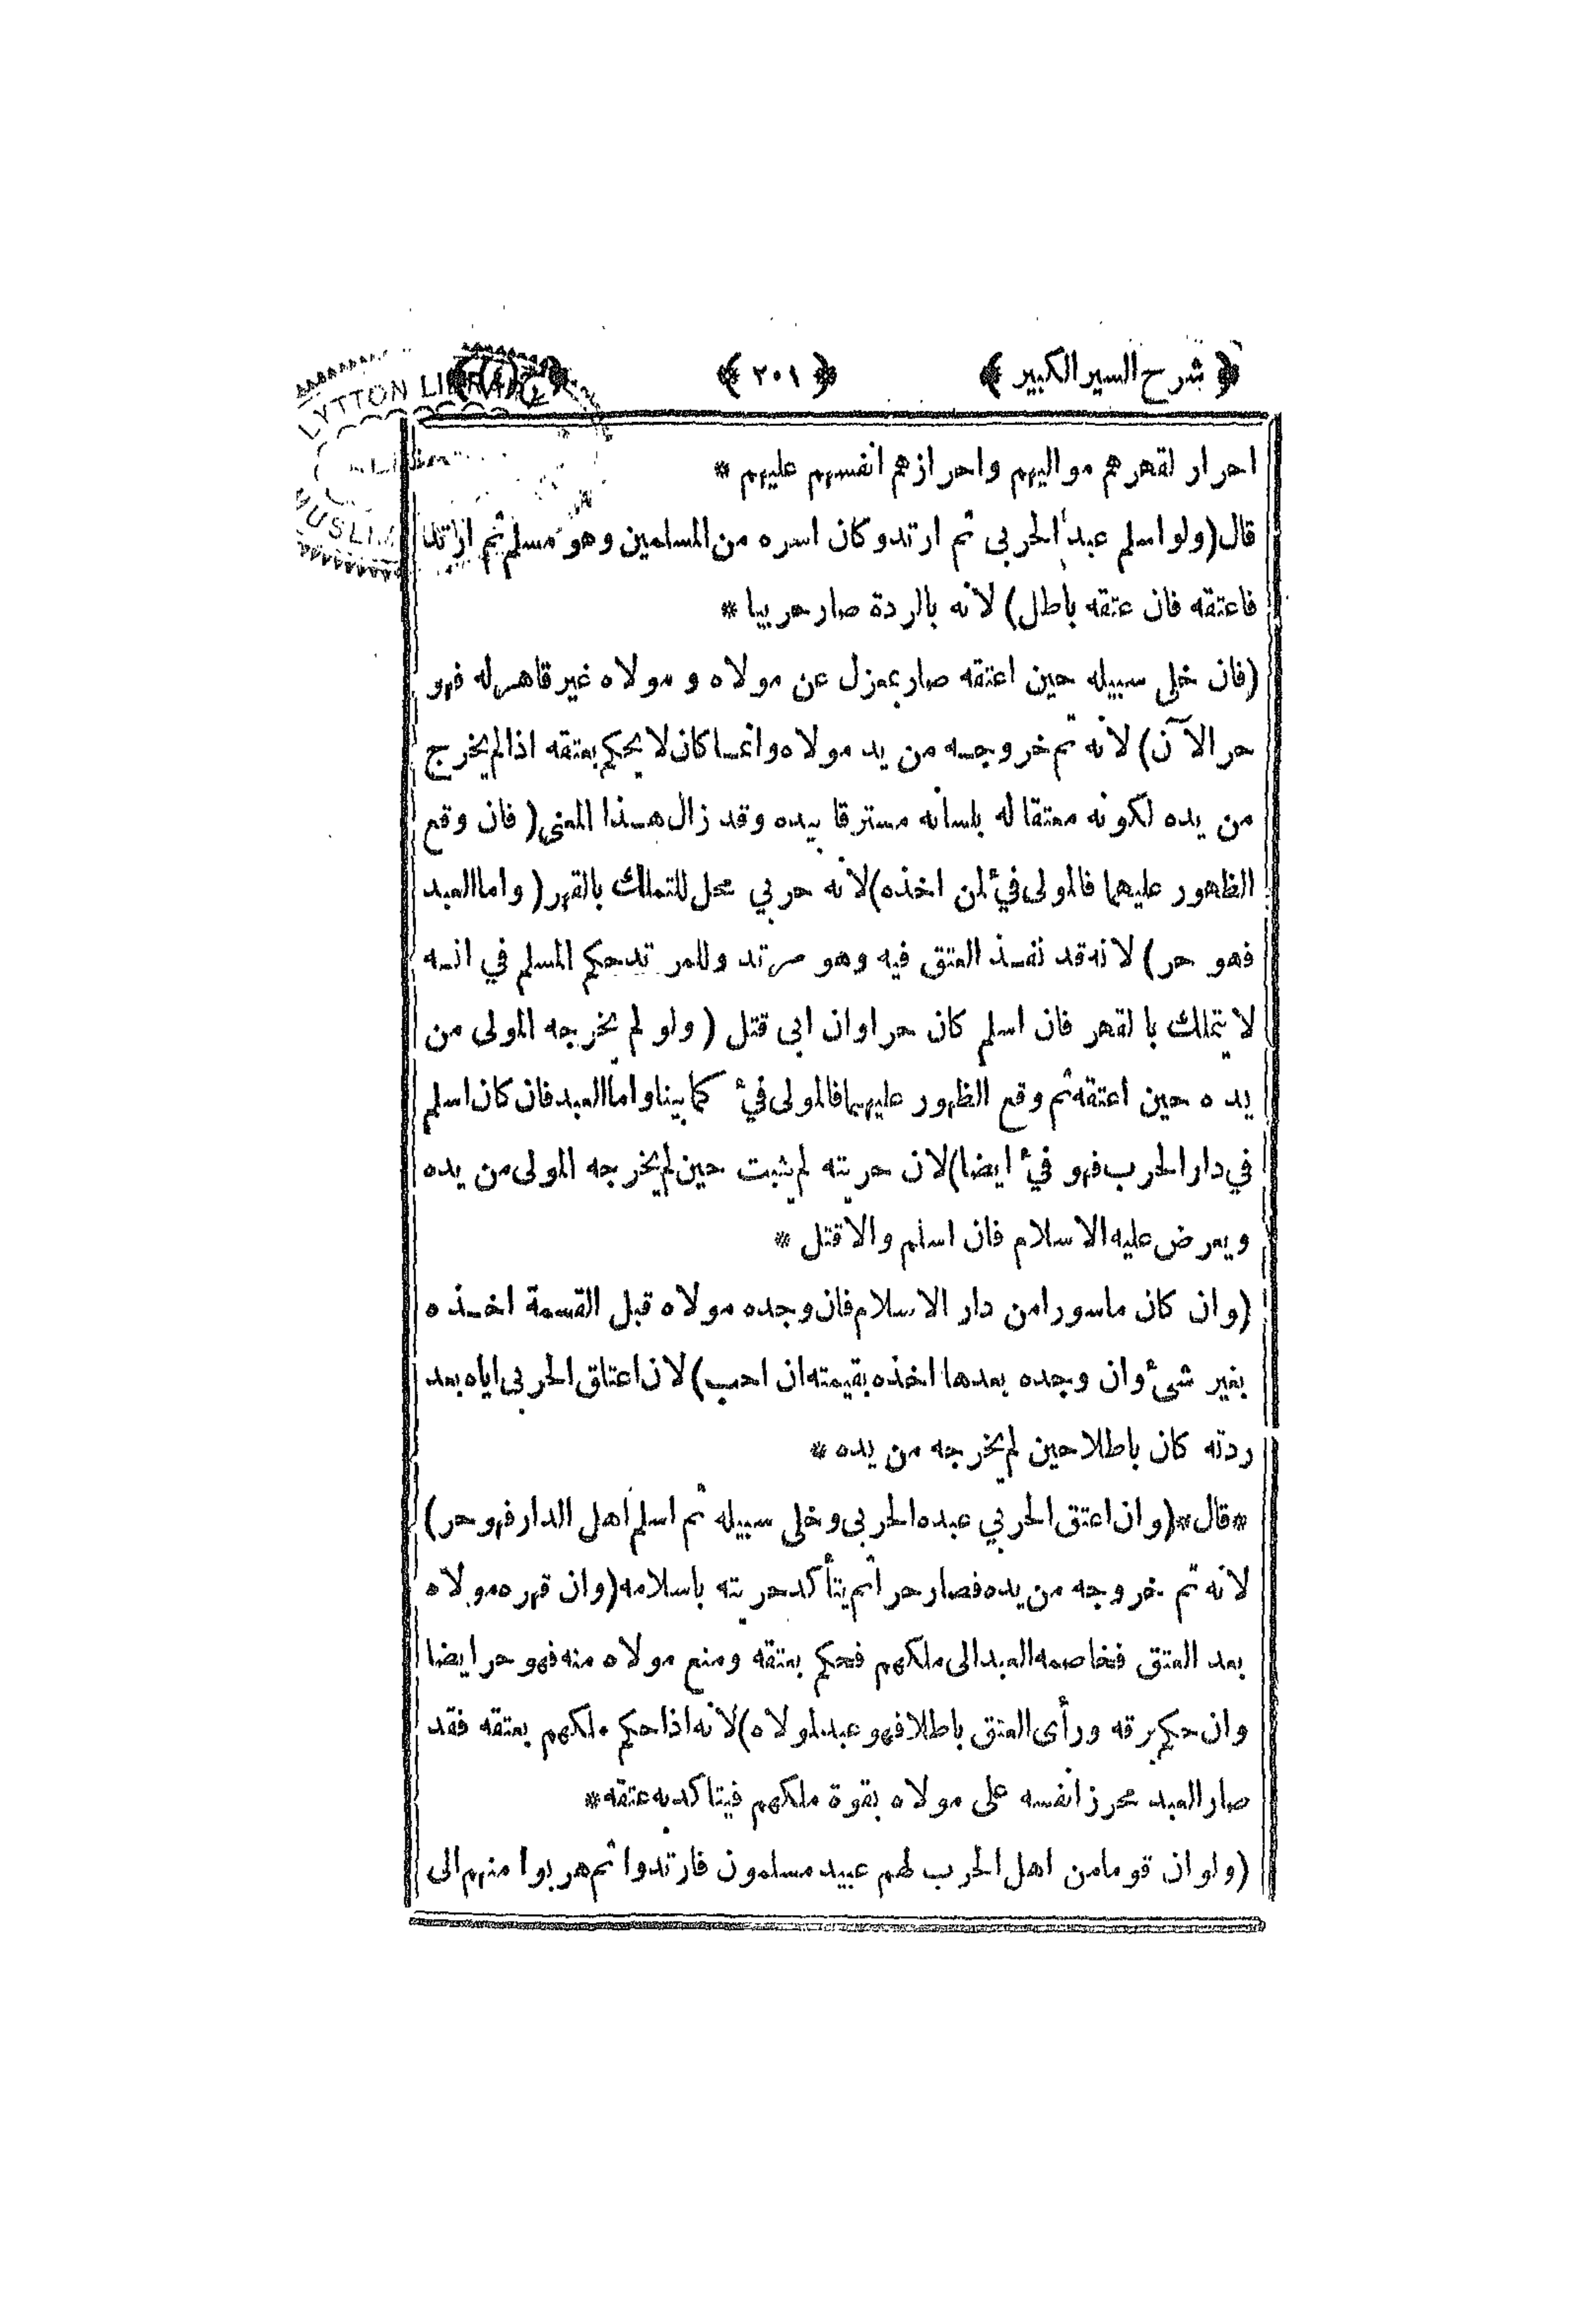 ﴿ شرح السير الكبير ﴾ ﴿ ٢٠١ ﴾
LYTTON LIBRARY
MUSLIM
احرار لقهرهم مواليهم واحرازهم انفسهم عليهم *
قال (ولو اسلم عبد الحربى ثم ارتد وكان اسره من المسلمين وهو مسلم ثم ارتد
فاعتقه فان عتقه باطل) لانه بالردة صار حربيا *
(فان خلى سبيله حين اعتقه صار بمعزل عن مولاه و مولاه غير قاهر له فهو
حر الآن) لانه تم خروجه من يد مولاه وانما كان لا يحكم بعتقه اذا لم يخرج
من يده لكونه معتقا له بلسانه مسترقا بيده وقد زال هذا المعنى (فان وقع
الظهور عليهما فالمولى فيء لمن اخذه) لانه حربي محل للتملك بالقهر (واما العبد
فهو حر) لانه قد نفذ العتق فيه وهو مرتد وللمرتد حكم المسلم في انه
لا يتملك بالقهر فان اسلم كان حرا وان ابى قتل (ولو لم يخرجه المولى من
يده حين اعتقه ثم وقع الظهور عليهما فالمولى فيء كما بينا واما العبد فان كان اسلم
في دار الحرب فهو فيء ايضا) لان حريته لم يثبت حين لم يخرجه المولى من يده
ويعرض عليه الاسلام فان اسلم والا قتل *
(وان كان ماسورا من دار الاسلام فان وجده مولاه قبل القسمة اخذه
بغير شىء وان وجده بعدها اخذه بقيمته ان احب) لان اعتاق الحربى اياه بعد
ردته كان باطلا حين لم يخرجه من يده *
*قال* (وان اعتق الحربي عبده الحربى وخلى سبيله ثم اسلم اهل الدار فهو حر)
لانه تم خروجه من يده فصار حرا ثم يتأكد حريته باسلامه (وان قهره مولاه
بعد العتق فخاصمه العبد الى ملكهم فحكم بعتقه ومنع مولاه منه فهو حر ايضا
وان حكم برقه ورأى العتق باطلا فهو عبد لمولاه) لانه اذا حكم ملكهم بعتقه فقد
صار العبد محرزا نفسه على مولاه بقوة ملكهم فيتاكد به عتقه *
(ولو ان قوما من اهل الحرب لهم عبيد مسلمون فارتدوا ثم هربوا منهم الى